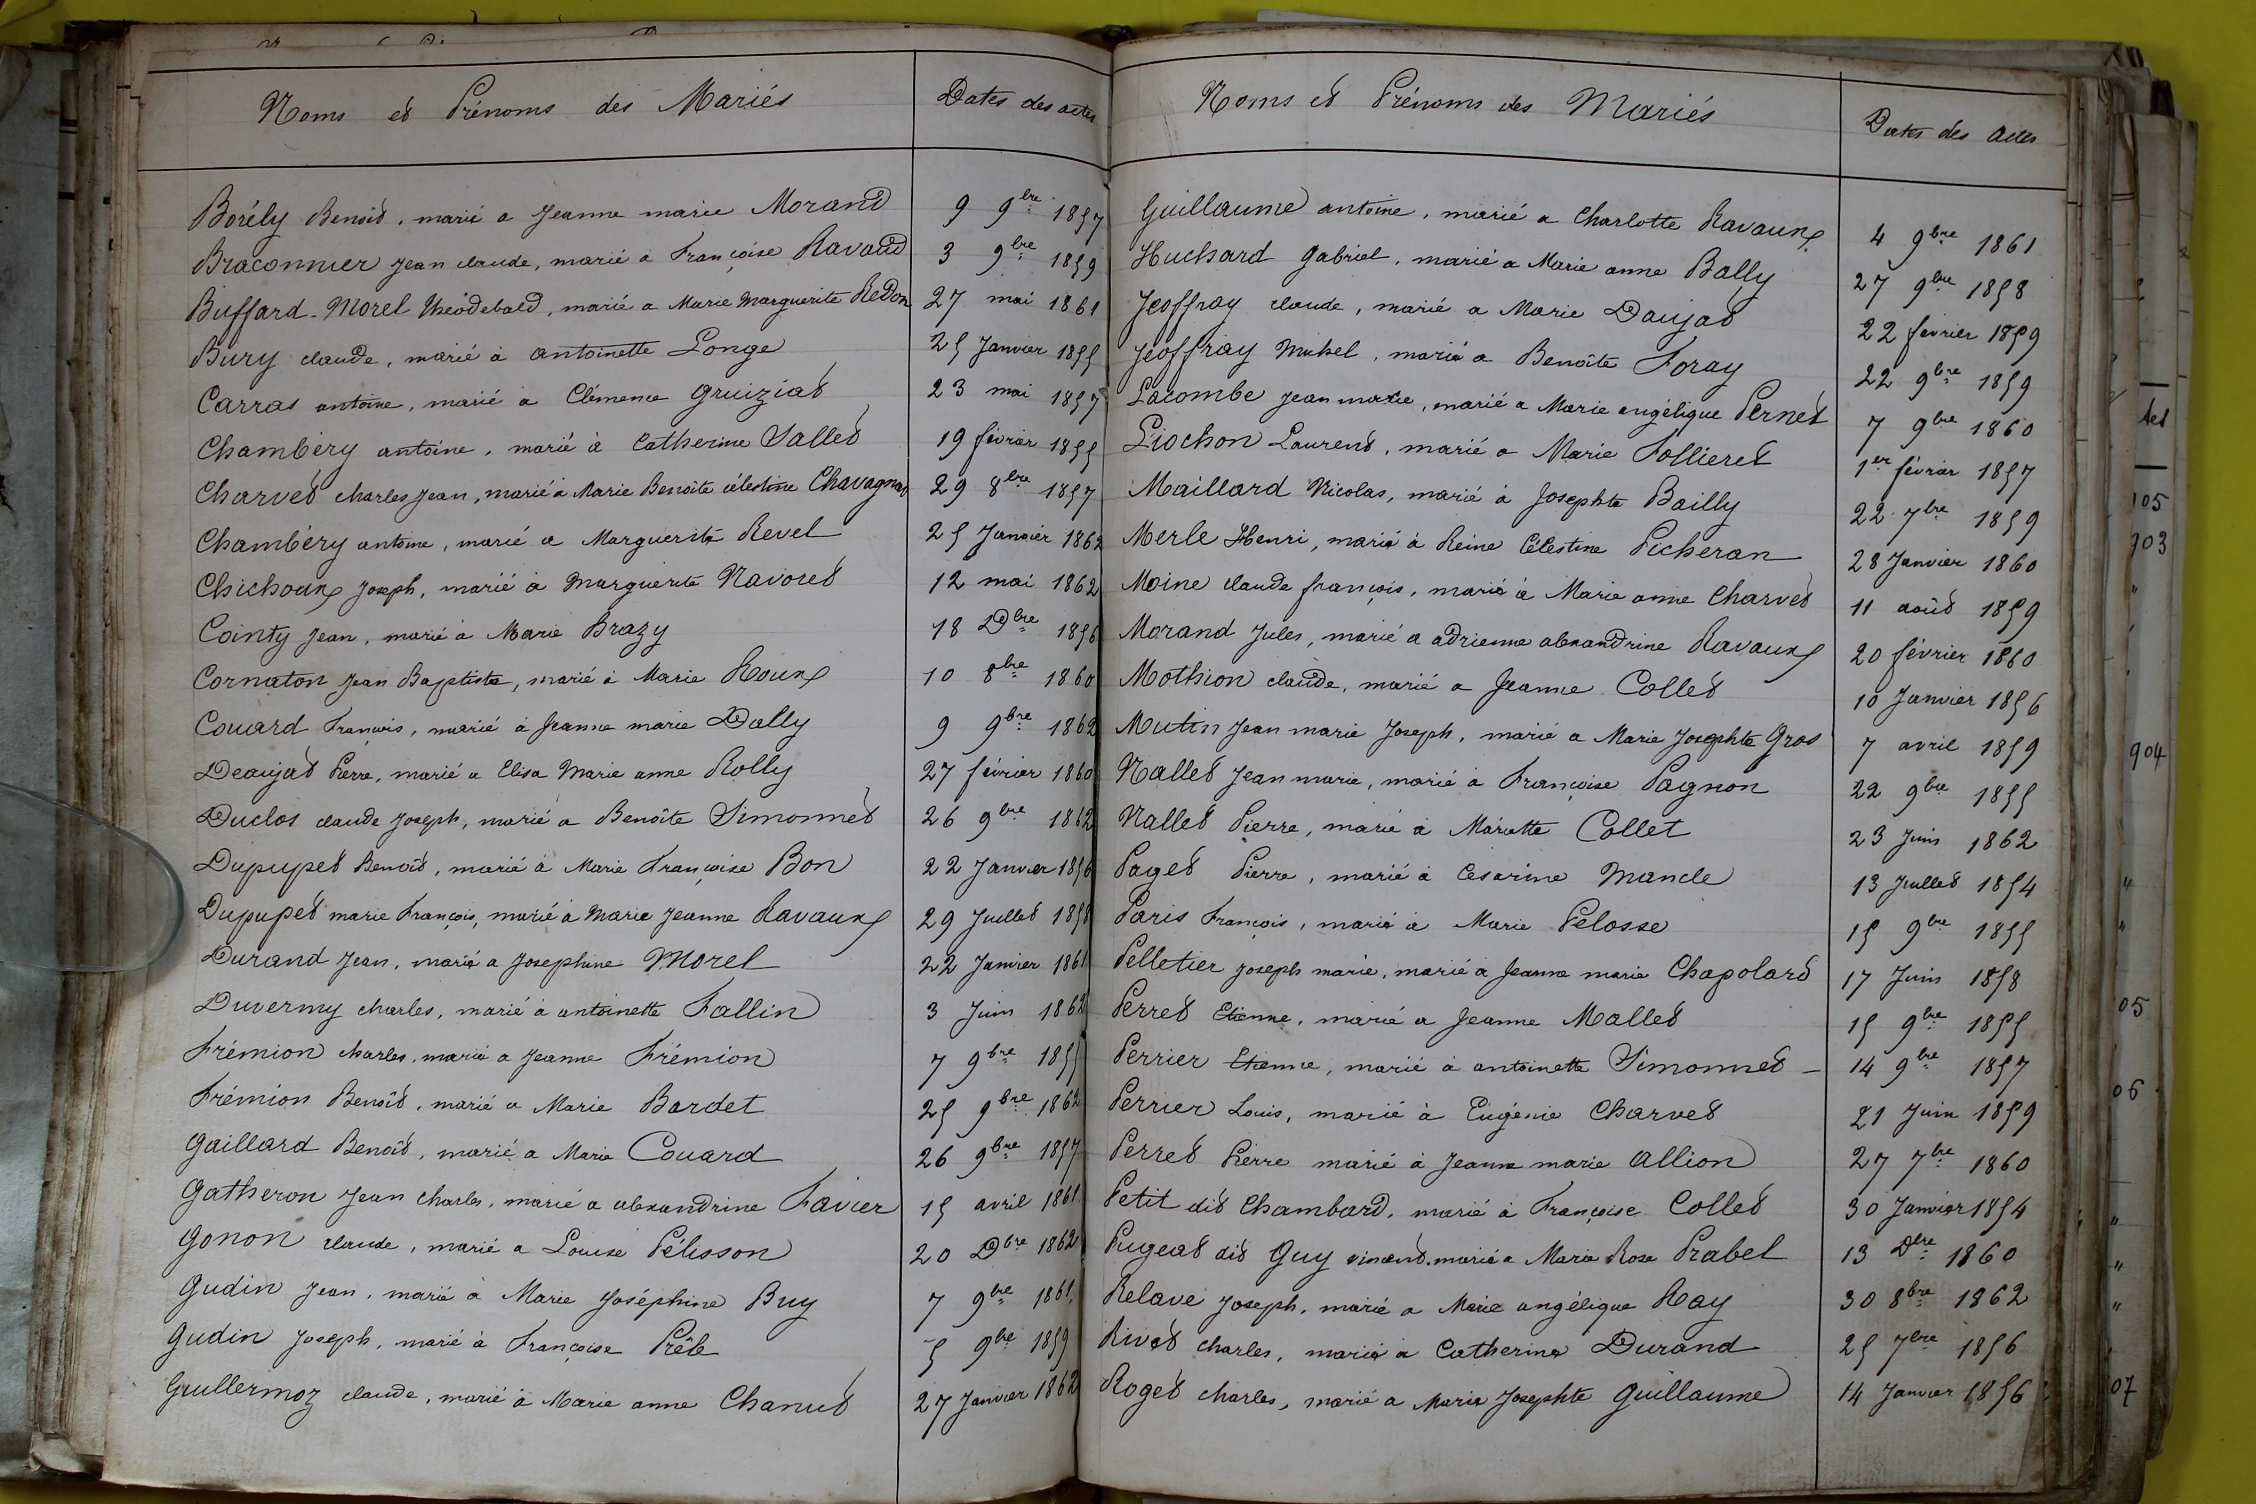 Noms et Prénoms des Mariés
Dates des actes
Borély Benoit, marié a Jeanne marie Morand 9 9bre 1857
Braconnier Jean claude, marié a Françoise Ravaud 3 9bre 1859
Buffard-Morel Théodebald, marié a Marie Marguerite Redon 27 mai 1861
Bury claude, marié à antoinette Longe 25 Janvier 1855
Carras antoine, marié a Clémence Gruiziat 23 mai 1857
Chambéry antoine, marié à Catherine Sallet 19 février 1855
Charvet charles Jean, marié a Marie Benoite célestine Chavagnat 29 8bre 1857
Chambéry antoine, marié a Marguerite Revel 25 Janvier 1862
Chichoux Joseph, marié à Marguerite Navoret 12 mai 1862
Cointy Jean, marié à Marie Brazy 18 Dbre 1856
Cornaton Jean Baptiste, marié à Marie Roux 10 8bre 1860
Couard François, marié à Jeanne marie Dally 9 9bre 1862
Deaujat Pierre, marié a Elisa Marie anne Rolly 27 février 1860
Duclos claude Joseph, marié a Benoîte Simonnet 26 9bre 1862
Dupupet Benoit, marié à Marie Françoise Bon 22 Janvier 1856
Dupupet marie François, marié à Marie Jeanne Ravaux 29 Juillet 1858
Durand Jean, marié a Josephine Morel 22 Janvier 1861
Duvermy charles, marié à antoinette Fallin 3 Juin 1862
Frémion charles, marié a Jeanne Frémion 7 9bre 1855
Frémion Benoît, marié a Marie Bardet 25 9bre 1862
Gaillard Benoît, marié a Marie Couard 26 9bre 1857
Gatheron Jean charles, marié a alexandrine Favier 15 avril 1861
Gonon claude, marié a Louise Pélisson 20 Dbre 1862
Gudin Jean, marié à Marie Joséphine Buy 7 9bre 1861
Gudin Joseph, marié à Françoise Prêle 5 9bre 1859
Guillermoz claude, marié à Marie anne Chanut 27 Janvier 1862
Noms et Prénoms des Mariés
Dates des actes
Guillaume antoine, marié a Charlotte Ravaux 4 9bre 1861
Huchard Gabriel, marié a Marie anne Bally 27 9bre 1858
Jeoffray claude, marié a Marie Daujat 22 février 1859
Jeoffray Michel, marié a Benoîte Foray 22 9bre 1859
Lacombe Jean marie, marié a Marie angélique Pernet 7 9bre 1860
Liochon Laurent, marié a Marie Follieret 1er février 1857
Maillard Nicolas, marié à Josephte Bailly 22 7bre 1859
Merle Henri, marié à Reine Célestine Picheran 28 Janvier 1860
Moine claude françois, marié à Marie anne Charvet 11 août 1859
Morand Jules, marié a adrienne alexandrine Ravaux 20 février 1860
Mothion claude, marié a Jeanne Collet 10 Janvier 1856
Mutin Jean marie Joseph, marié a Marie Josephte Gros 7 avril 1859
Nallet Jean marie, marié à Françoise Pagnon 22 9bre 1855
Nallet Pierre, marié a Mariette Collet 23 Juin 1862
Paget Pierre, marié à Césarine Mancle 13 Juillet 1854
Paris François, marié à Marie Pelosse 15 9bre 1855
Pelletier Joseph marie, marié à Jeanne marie Chapolard 17 Juin 1858
Perret Etienne, marié a Jeanne Mallet 15 9bre 1855
Perrier Etienne, marié à antoinette Simonnet 14 9bre 1857
Perrier Louis, marié à Eugénie Charvet 21 Juin 1859
Perret Pierre marié à Jeanne marie Allion 27 7bre 1860
Petit dit Chambard, marié à Françoise Collet 30 Janvier 1854
Pugeat dit Guy vincent, marié a Marie Rose Prabel 13 Dbre 1860
Relave Joseph, marié a Marie angélique Ray 30 8bre 1862
Rivat charles, marié a Catherine Durand 25 7bre 1856
Roget charles, marié a Marie Josephte Guillaume 14 Janvier 1856
105
903
904
05
06
07